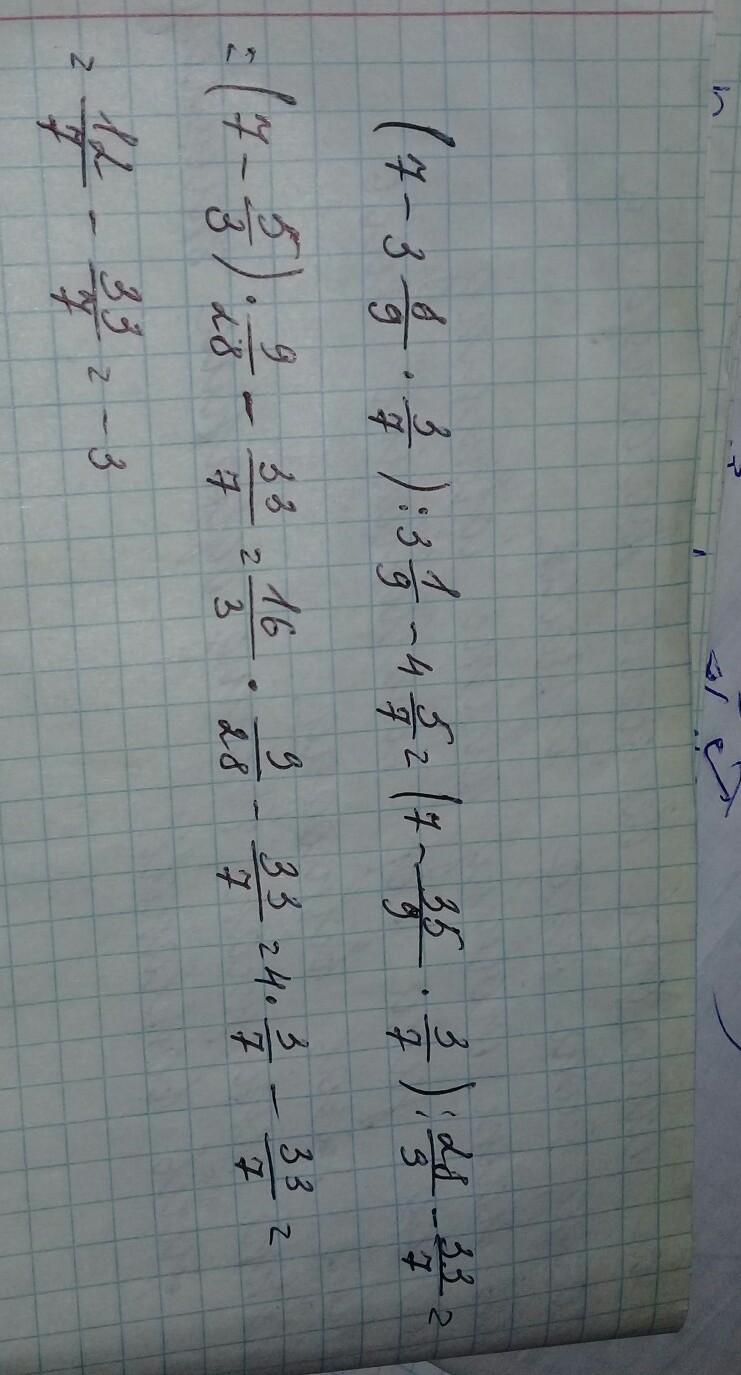 (7 - 3 8/9 · 3/7) : 3 1/9 - 4 5/7 = (7 - 35/9 · 3/7) : 28/9 - 33/7 =
= (7 - 5/3) · 9/28 - 33/7 = 16/3 · 9/28 - 33/7 = 4 · 3/7 - 33/7 =
= 12/7 - 33/7 = -3